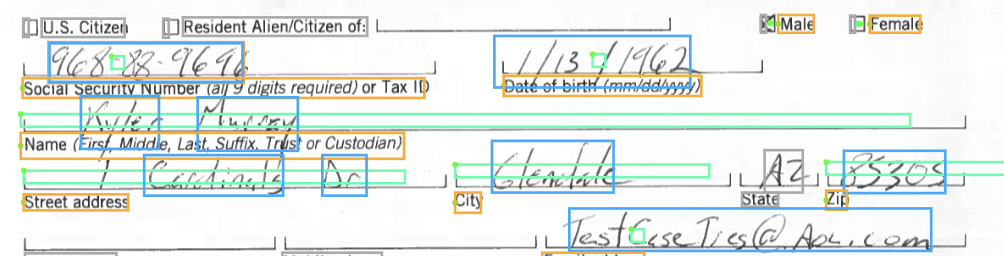 U.S. Citizen Resident Alien/Citizen of: Male Female
968-88-9696 1/13/1962
Social Security Number (all 9 digits required) or Tax ID Date of birth (mm/dd/yyyy)
Kyler Murray
Name (First, Middle, Last. Suffix. Trust or Custodian)
1 Cardinals Dr Glendale AZ 85305
Street address City State Zip
TestCaseTies@Aol.com